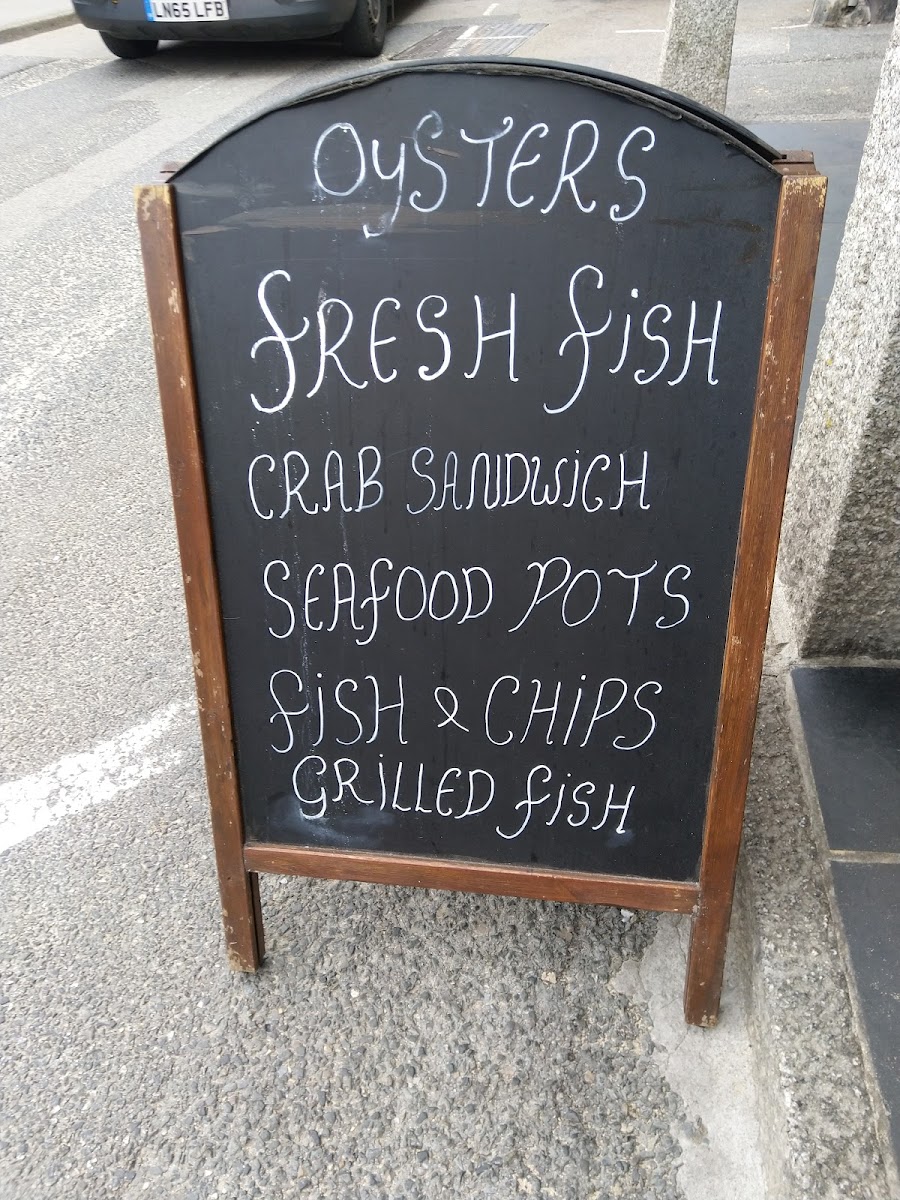 LN65 LFB
OySTERS
fRESH fiSH
CRAB SANDWiCH
SEAfOOD POTS
fiSH & CHiPS
GRiLLED fiSH